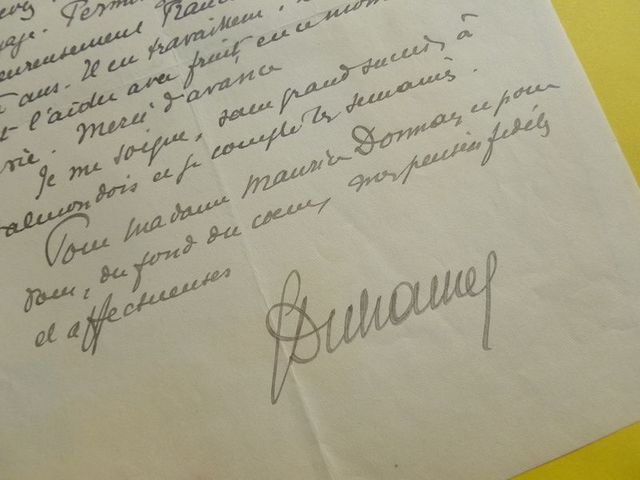 Permis
heureusement
ans. Il en travailleur,
l'aider avec fruit en ce mom
vie. Merci d'avance
Je me soigne, sans grand succès à
Valmondois et je compte les semaines.
Pour madame Maurice Donnay et pour
vous, du fond du coeur, mes pensées fidèles
et affectueuses
Duhamel